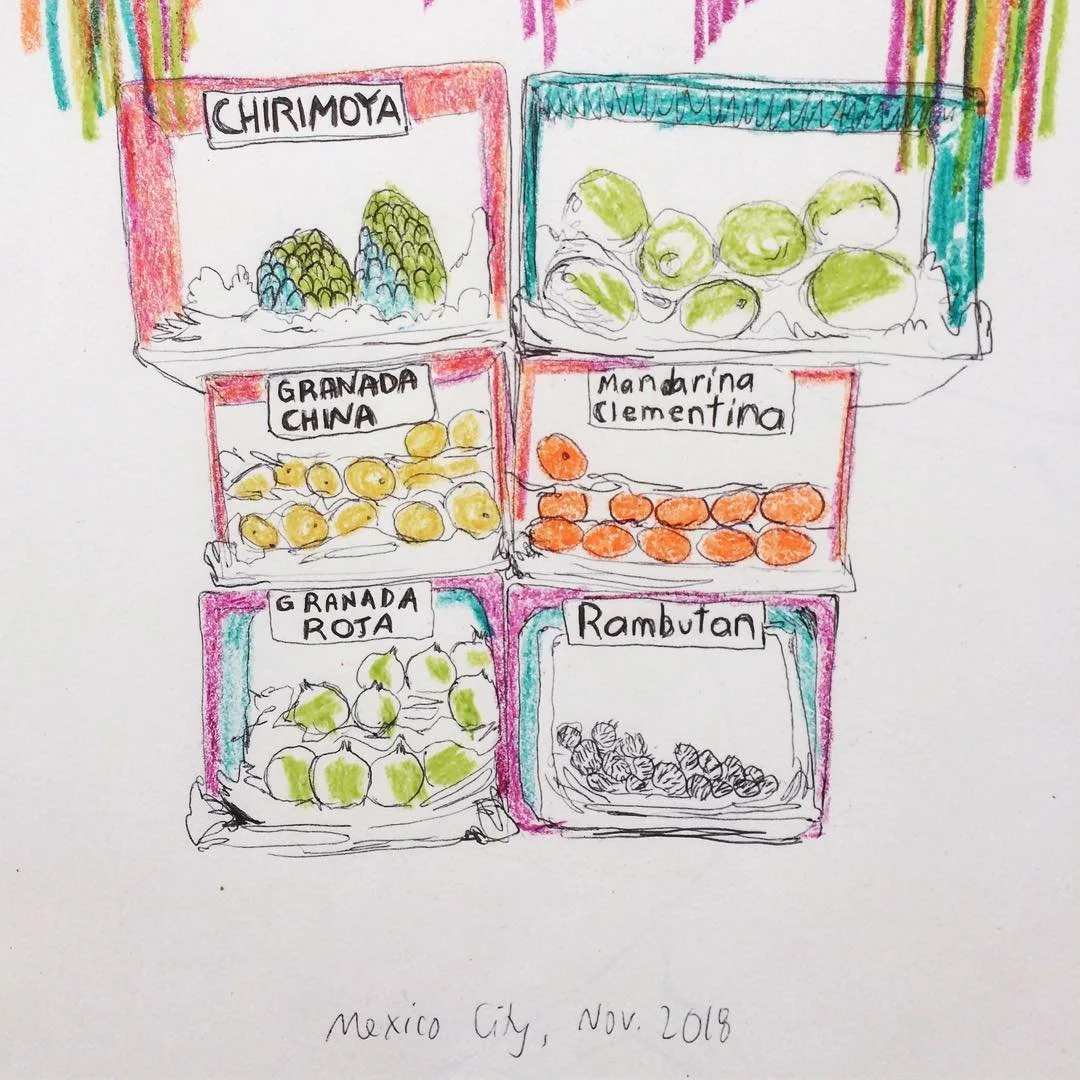 CHIRIMOYA
GRANADA
CHINA
Mandarina
Clementina
GRANADA
ROJA
Rambutan
Mexico City, Nov. 2018